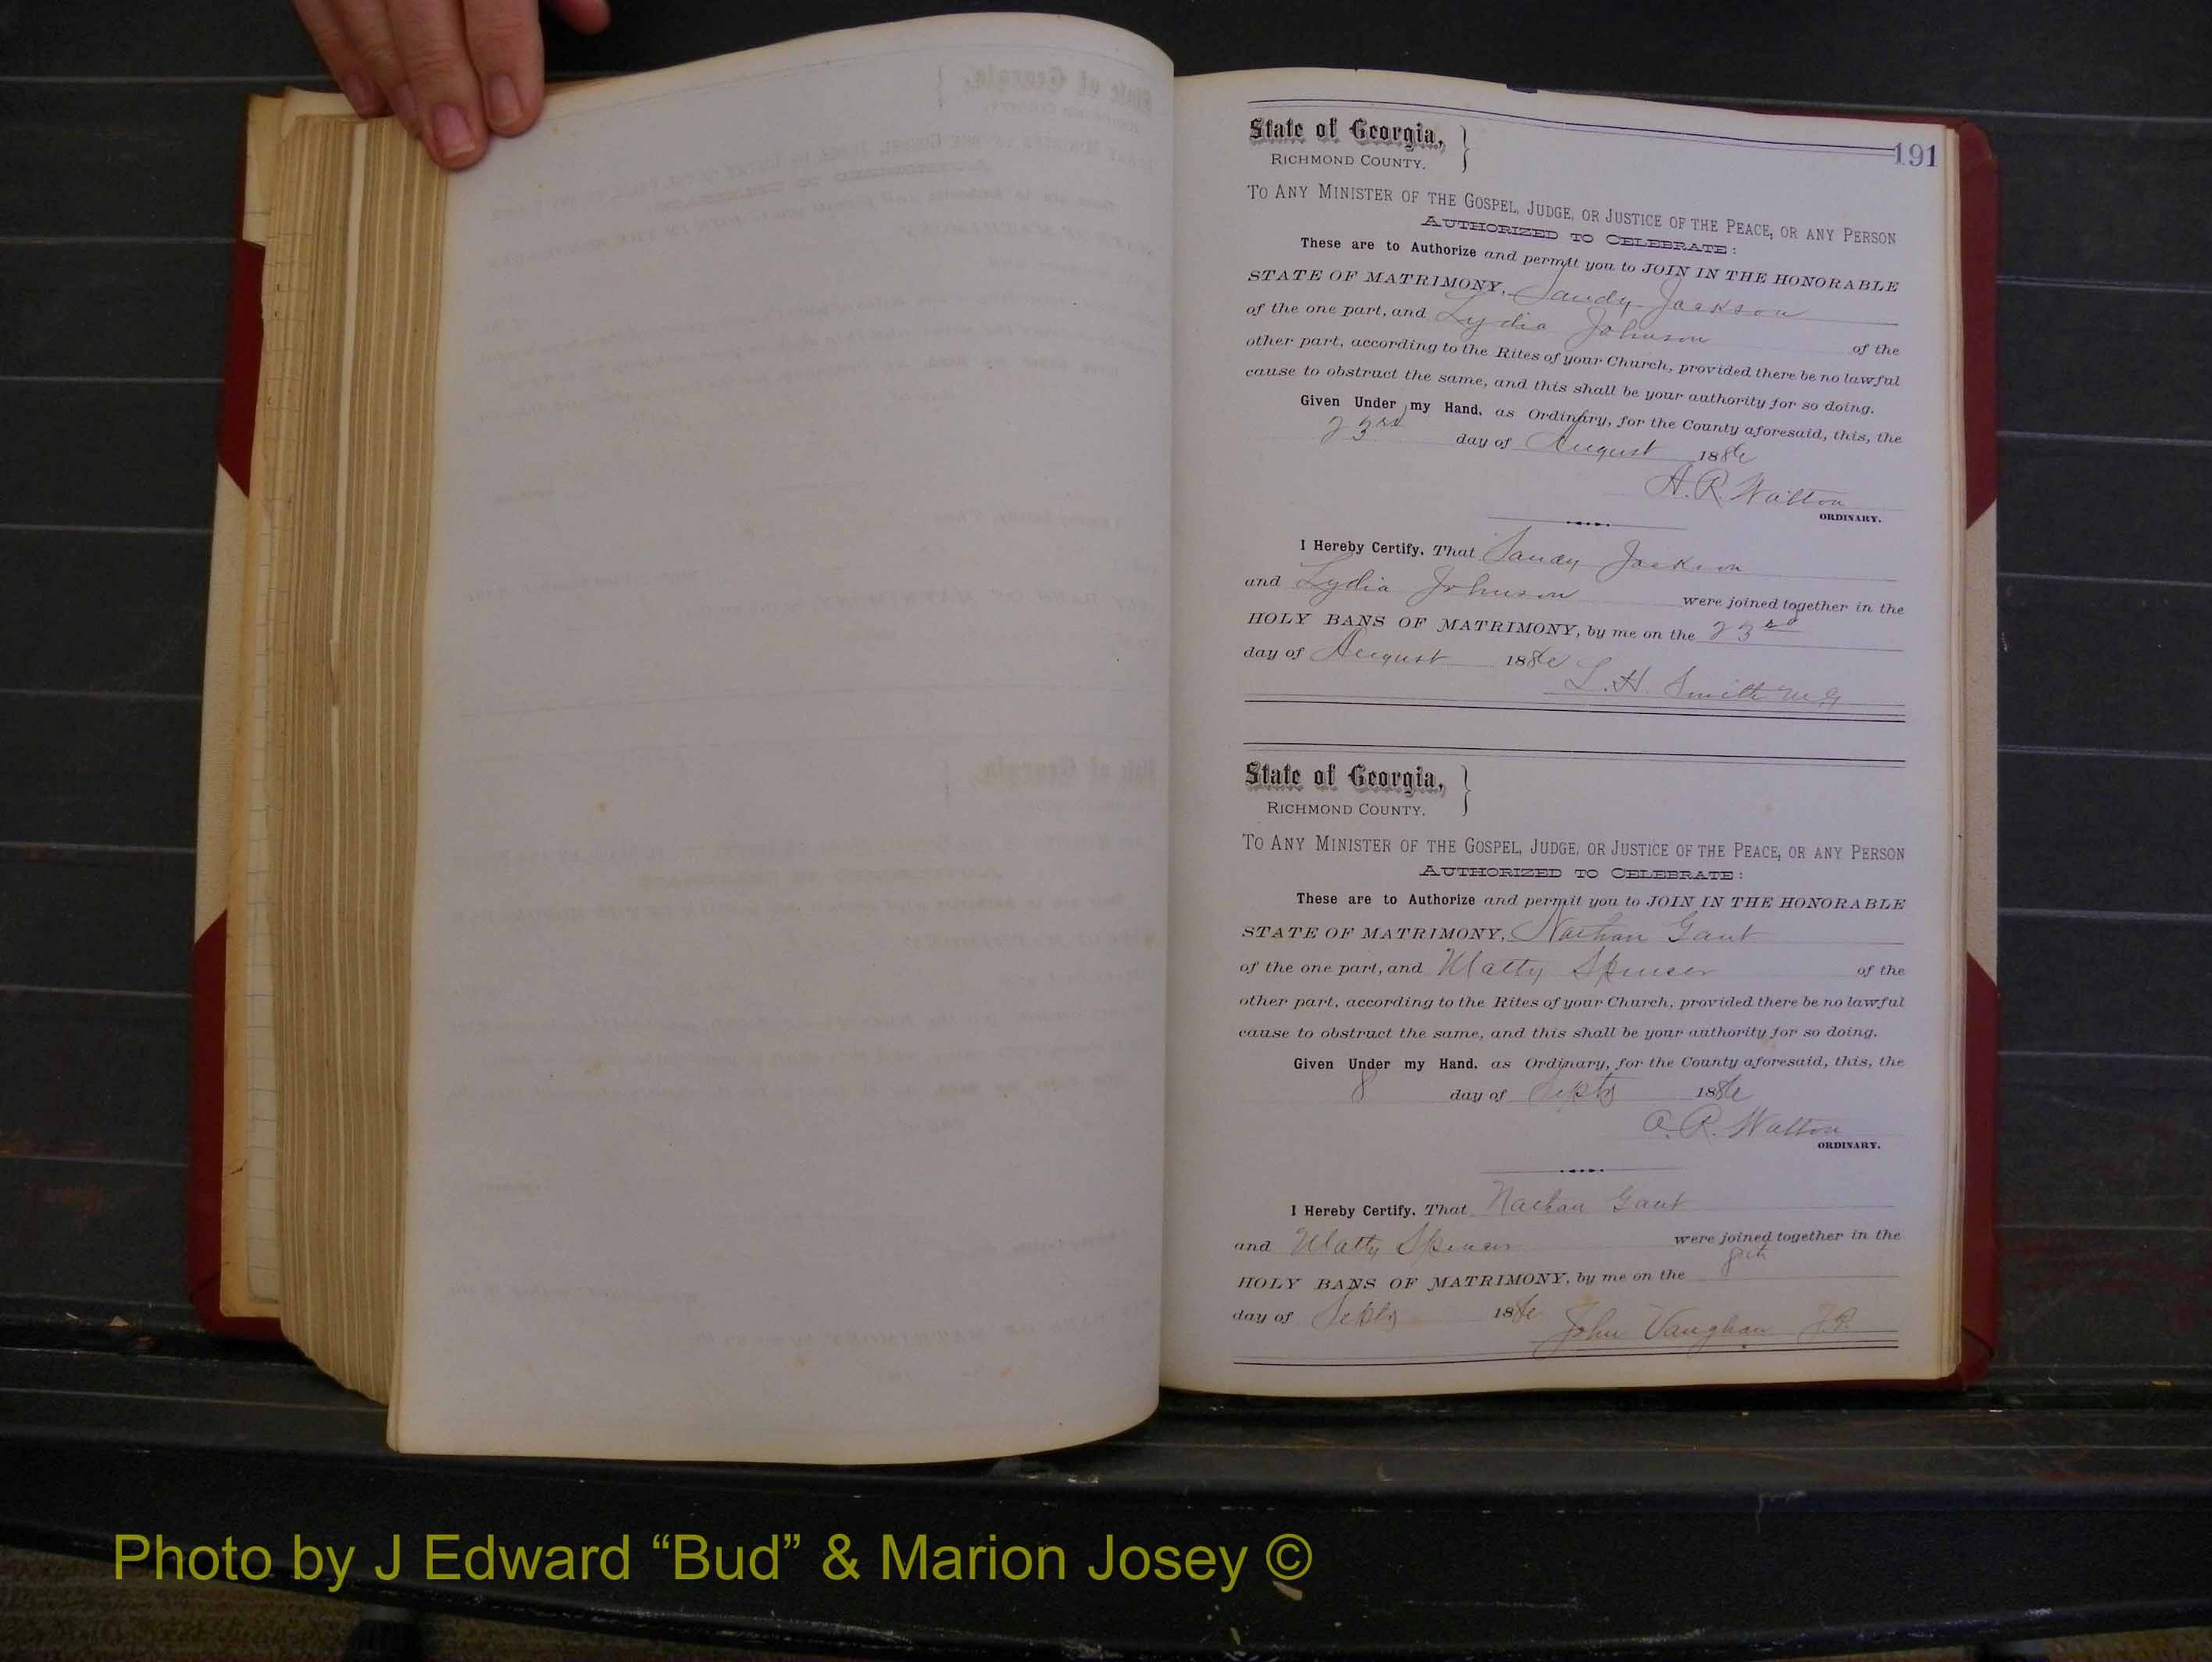 191
State of Georgia,
RICHMOND COUNTY.
TO ANY MINISTER OF THE GOSPEL, JUDGE, OR JUSTICE OF THE PEACE, OR ANY PERSON
AUTHORIZED TO CELEBRATE:
These are to Authorize and permit you to JOIN IN THE HONORABLE
STATE OF MATRIMONY, Sandy Jackson
of the one part, and Lydia Johnson of the
other part, according to the Rites of your Church, provided there be no lawful
cause to obstruct the same, and this shall be your authority for so doing.
Given Under my Hand, as Ordinary, for the County aforesaid, this, the
23rd day of August 1886
A. R. Walton
ORDINARY.
I Hereby Certify, That Sandy Jackson
and Lydia Johnson were joined together in the
HOLY BANS OF MATRIMONY, by me on the 23rd
day of August 1886
L. H. Smith M.G.
State of Georgia,
RICHMOND COUNTY.
TO ANY MINISTER OF THE GOSPEL, JUDGE, OR JUSTICE OF THE PEACE, OR ANY PERSON
AUTHORIZED TO CELEBRATE:
These are to Authorize and permit you to JOIN IN THE HONORABLE
STATE OF MATRIMONY, Nathan Gant
of the one part, and Matty Spencer of the
other part, according to the Rites of your Church, provided there be no lawful
cause to obstruct the same, and this shall be your authority for so doing.
Given Under my Hand, as Ordinary, for the County aforesaid, this, the
8 day of Septr 1886
A. R. Walton
ORDINARY.
I Hereby Certify, That Nathan Gant
and Matty Spencer were joined together in the
HOLY BANS OF MATRIMONY, by me on the 8th
day of Septr 1886
John Vaughan J.P.
Photo by J Edward “Bud” & Marion Josey ©